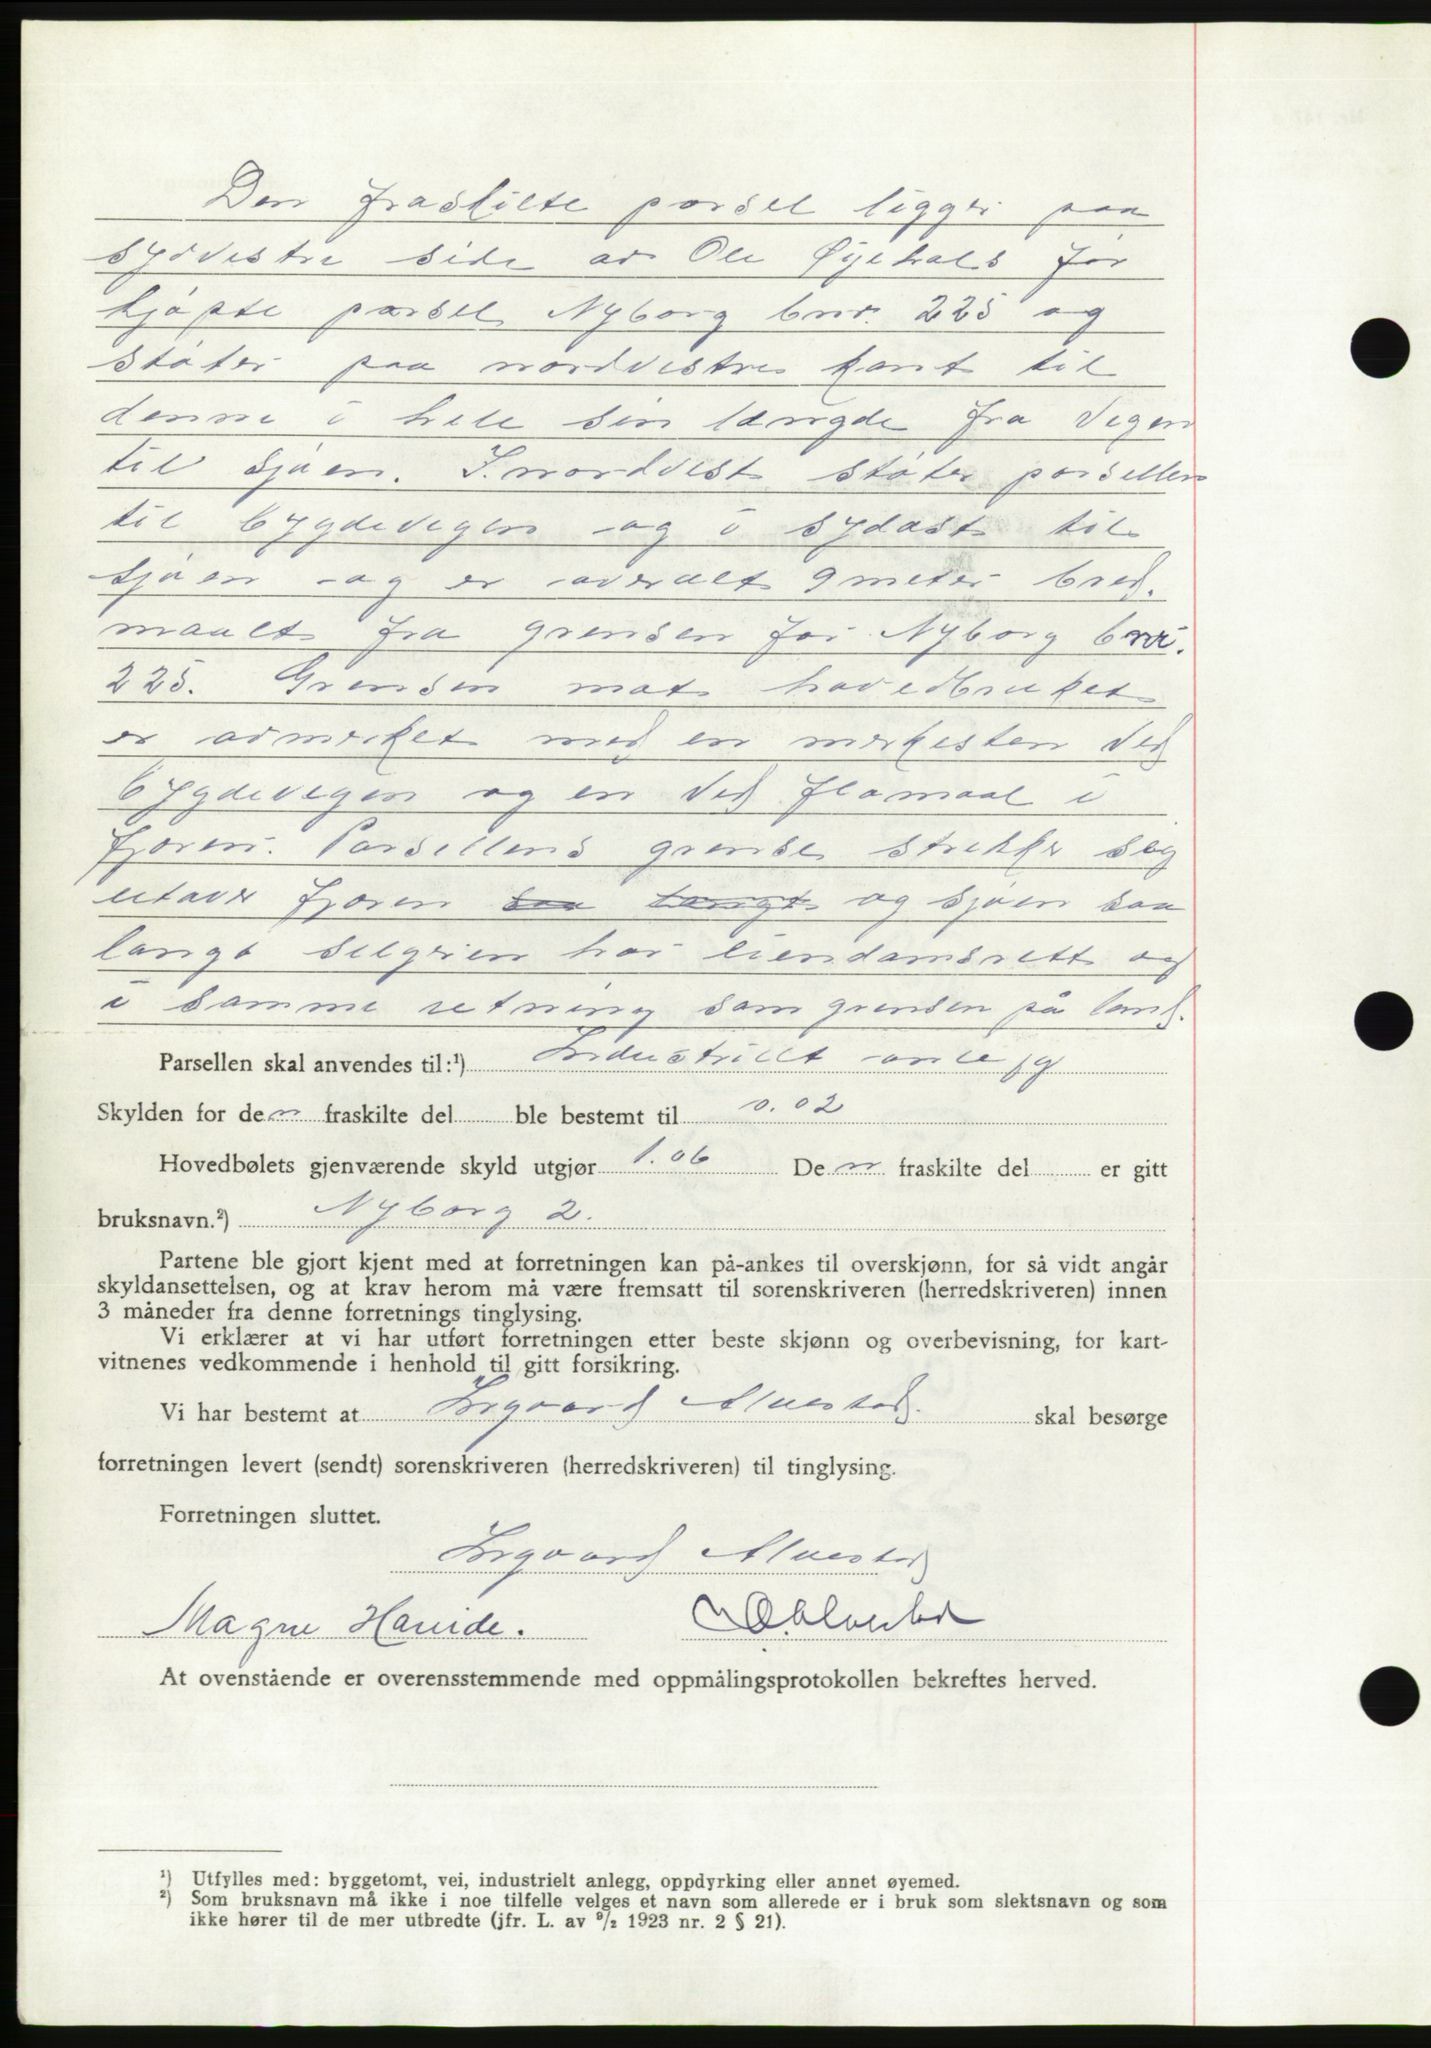 Den fraskilte parsel ligger paa
sydvestre side av Ole Øyehals før
kjøpte parsel Nyborg bnr. 225 og
støter paa nordvestre kant til
denne i hele sin længde fra vegen
til sjøen. I nordvest støter parsellen
til bygdevegen og i sydøst til
sjøen og er overalt 9 meter bred.
maalt fra grensen for Nyborg bnr.
225. Grensen mot hovedbruket
er avmerket med en merkesten ved
bygdevegen og en ved flomaal i
fjøren. Parsellens grense strekker seg
utover fjøren saa langt og sjøen saa
langt selgeren har eiendomsrett og
i samme retning som grensen på land.
Parsellen skal anvendes til:¹) Industrielt anlegg
Skylden for den fraskilte del ble bestemt til 0.02
Hovedbølets gjenværende skyld utgjør 1.06 Den fraskilte del er gitt
bruksnavn.²) Nyborg 2.
Partene ble gjort kjent med at forretningen kan på-ankes til overskjønn, for så vidt angår
skyldansettelsen, og at krav herom må være fremsatt til sorenskriveren (herredskriveren) innen
3 måneder fra denne forretnings tinglysing.
Vi erklærer at vi har utført forretningen etter beste skjønn og overbevisning, for kart-
vitnenes vedkommende i henhold til gitt forsikring.
Vi har bestemt at Ingvard Alvestad skal besørge
forretningen levert (sendt) sorenskriveren (herredskriveren) til tinglysing.
Forretningen sluttet.
Ingvard Alvestad
Magne Havide.
At ovenstående er overensstemmende med oppmålingsprotokollen bekreftes herved.
¹) Utfylles med: byggetomt, vei, industrielt anlegg, oppdyrking eller annet øyemed.
²) Som bruksnavn må ikke i noe tilfelle velges et navn som allerede er i bruk som slektsnavn og som
ikke hører til de mer utbredte (jfr. L. av ⁹/₂ 1923 nr. 2 § 21).